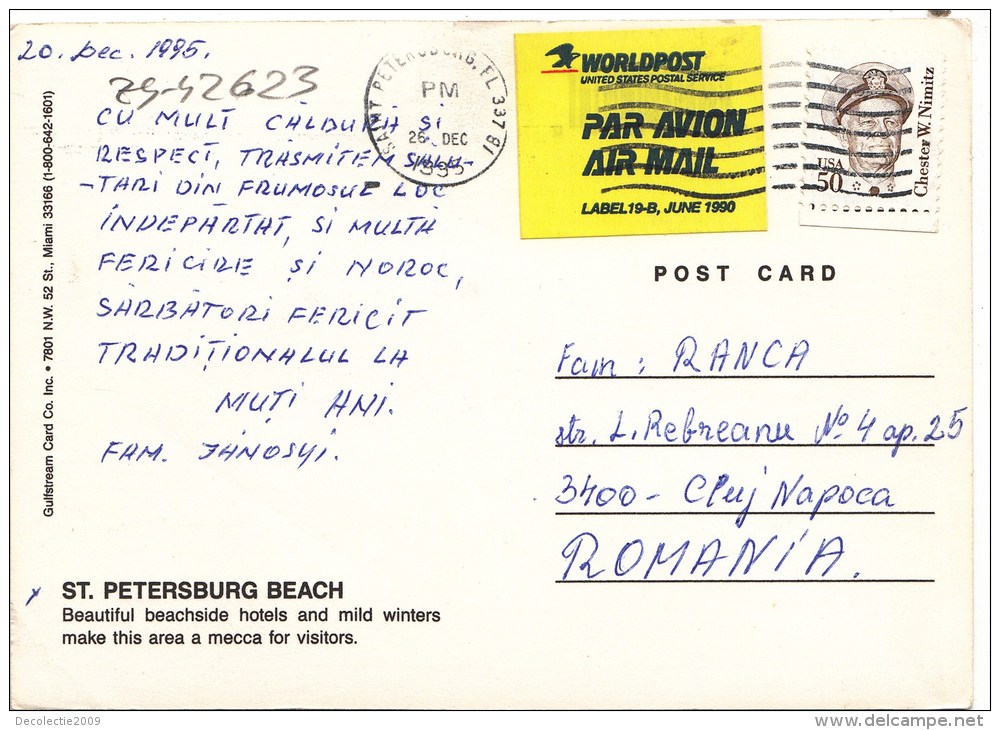 20. Dec. 1995.
zg-42623
CU MULT CĂLDURĂ ȘI
RESPECT, TRASMITEM SALU-
-TARI DIN FRUMOSUL LOC
ÎNDEPĂRTAT, SI MULTĂ
FERICIRE ȘI NOROC,
SĂRBĂTORI FERICIT
TRADIȚIONALUL LA
MUȚI ANI.
FAM. JÁNOSYI.
Gulfstream Card Co. Inc. • 7801 N.W. 52 St., Miami 33166 (1-800-642-1601)
SAINT PETERSBURG, FL 33781
PM
26 DEC
1995
WORLDPOST
UNITED STATES POSTAL SERVICE
PAR AVION
AIR MAIL
LABEL 19-B, JUNE 1990
USA
50
Chester W. Nimitz
POST CARD
Fam: RANCA
str. L. Rebreanu No 4 ap. 25
3400 - Cluj Napoca
ROMANIA.
ST. PETERSBURG BEACH
Beautiful beachside hotels and mild winters
make this area a mecca for visitors.
Decolectie2009
www.delcampe.net